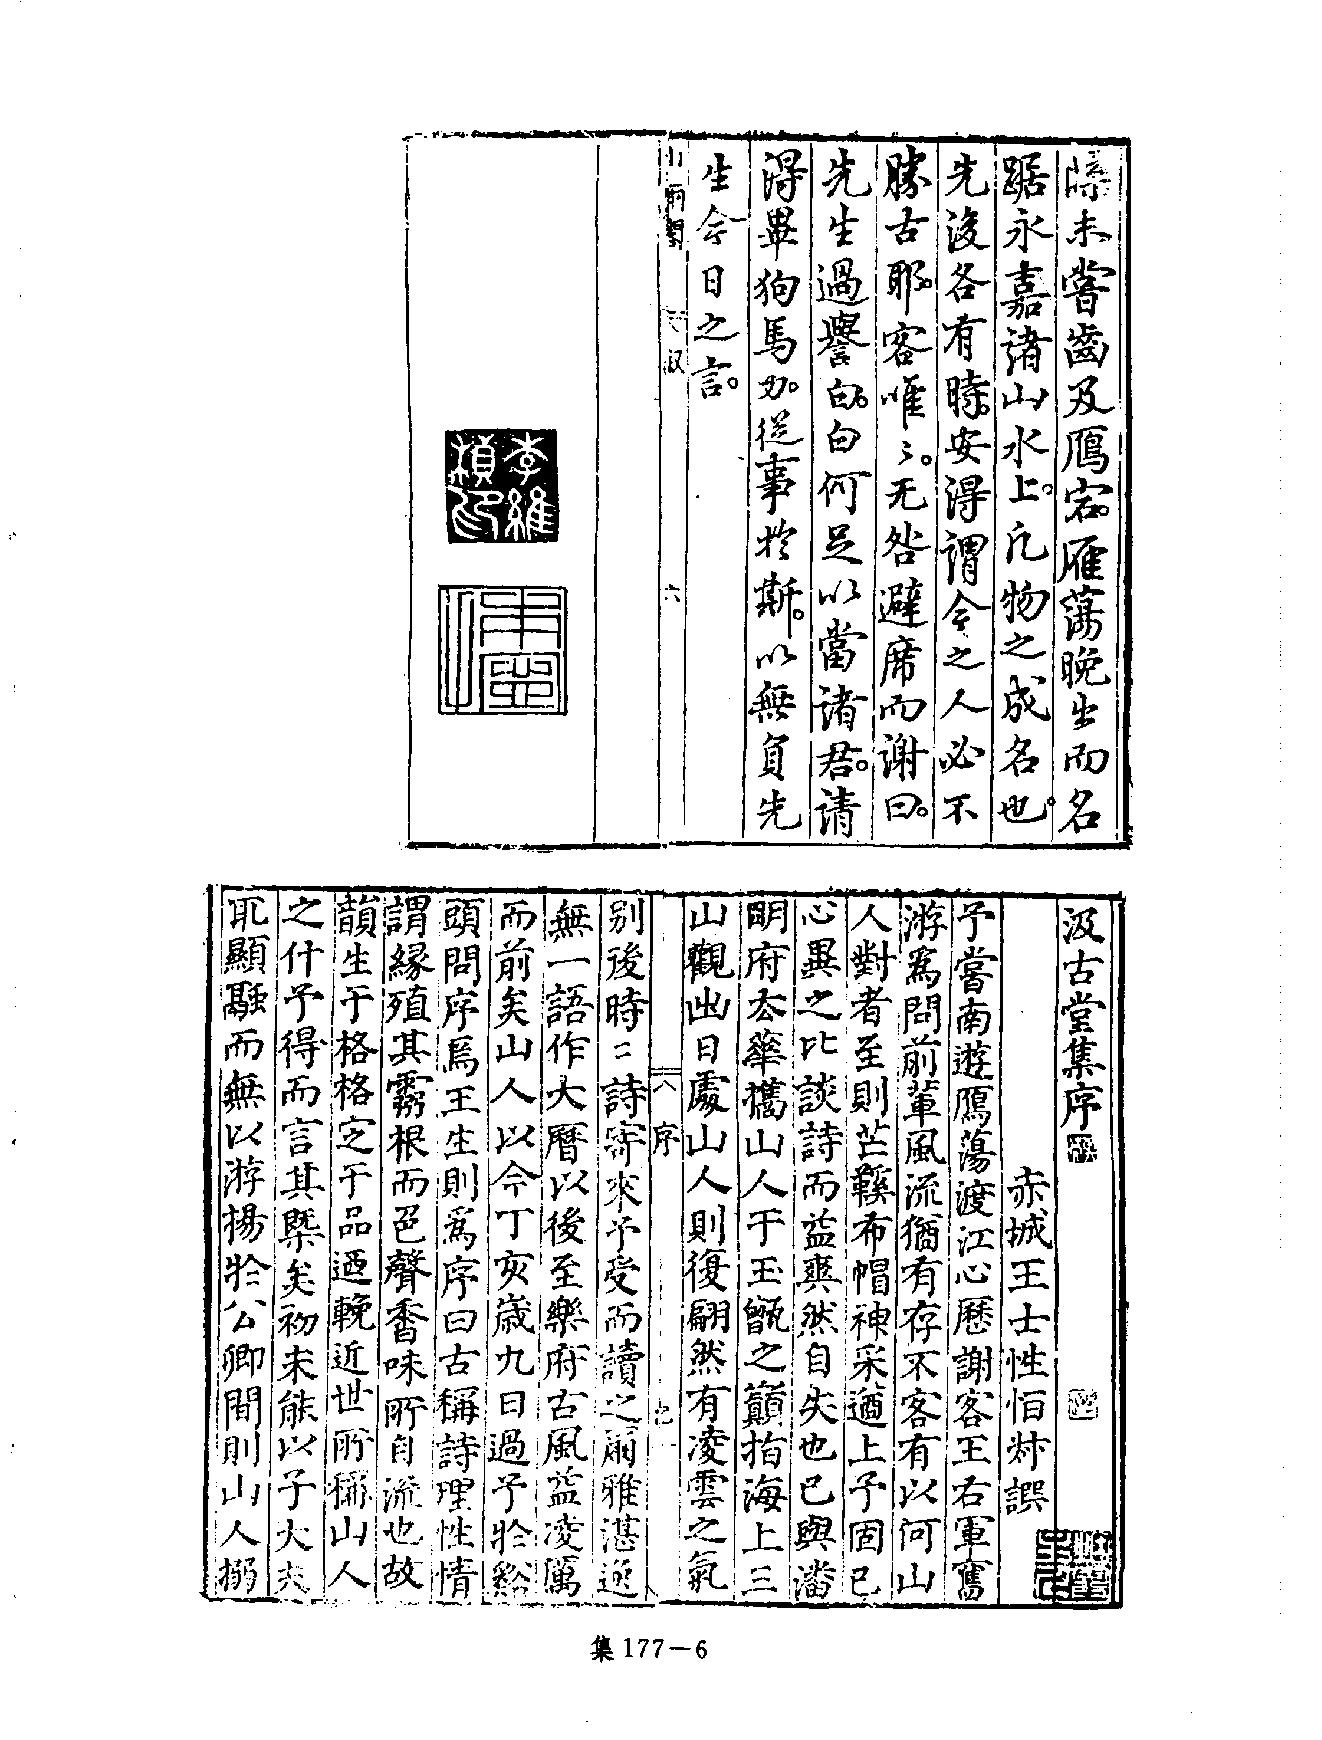 隊未嘗齒及鴈宕。雁蕩晚出而名
踞永嘉諸山水上。凡物之成名也。
先後各有時。安得謂今之人必不
勝古耶。客唯〻。无咎避席而謝曰。
先生過譽白。白何足以當諸君。請
得畢狗馬力。從事於斯。以無負先
生今日之言。
六
李維楨印
汲古堂集序
赤城王士性恒叔譔
予嘗南遊鴈蕩渡江心歷謝客王右軍舊
游為問前輩風流猶有存不客有以何山
人對者至則芒鞵布帽神采遒上予固已
心異之比談詩而益爽然自失也已與潘
明府去華攜山人于玉甑之巔指海上三
山觀出日處山人則復翩然有凌雲之氣
序
別後時〻詩寄來予受而讀之爾雅湛逈
無一語作大曆以後至樂府古風益凌厲
而前矣山人以今丁亥歲九日過予於谿
頭問序焉王生則為序曰古稱詩理性情
謂緣殖其霧根而色聲香味所自流也故
韻生于格格定于品迺輓近世所稱山人
之什予得而言其槩矣初未能以子大夫
耴顯融而無以游揚於公卿間則山人搦
集 177—6